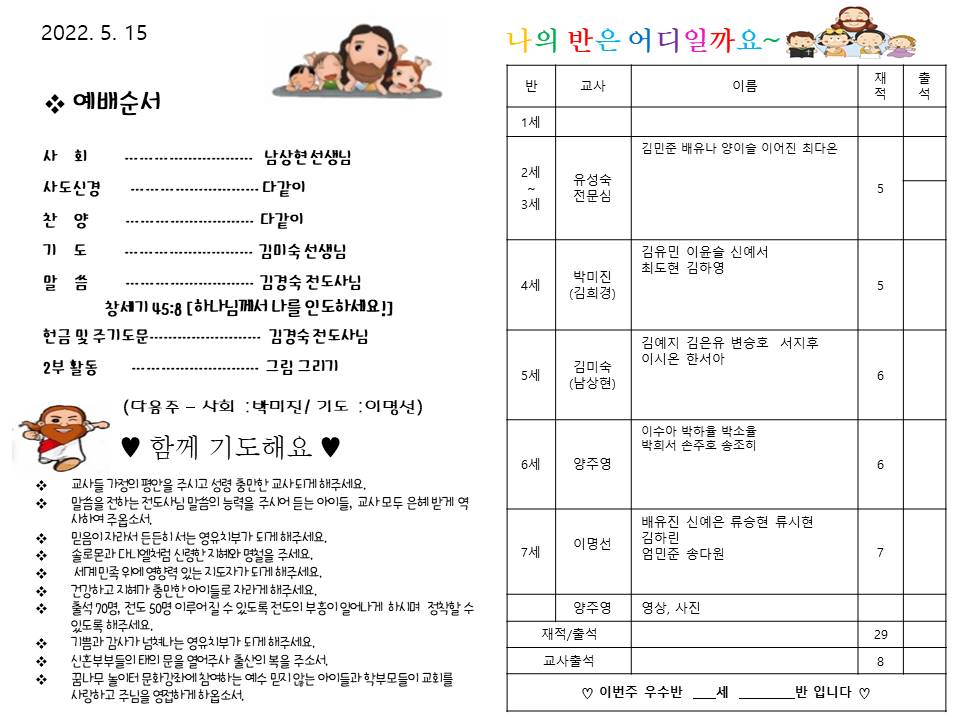 2022. 5. 15
❖ 예배순서
사 회 --------------------------- 남상현 선생님
사도신경 --------------------------- 다같이
찬 양 --------------------------- 다같이
기 도 --------------------------- 김미숙 선생님
말 씀 --------------------------- 김경숙 전도사님
창세기 45:8 [하나님께서 나를 인도하세요!]
헌금 및 주기도문------------------------ 김경숙 전도사님
2부 활동 --------------------------- 그림 그리기
(다음주 – 사회 :박미진/ 기도 :이명선)
♥ 함께 기도해요 ♥
❖ 교사들 가정의 평안을 주시고 성령 충만한 교사 되게 해주세요.
❖ 말씀을 전하는 전도사님 말씀의 능력을 주시어 듣는 아이들, 교사 모두 은혜 받게 역
사하여 주옵소서.
❖ 믿음이 자라서 든든히 서는 영유치부가 되게 해주세요.
❖ 솔로몬과 다니엘처럼 신령한 지혜와 명철을 주세요.
❖ 세계 민족 위에 영향력 있는 지도자가 되게 해주세요.
❖ 건강하고 지혜가 충만한 아이들로 자라게 해주세요.
❖ 출석 70명, 전도 50명 이루어질 수 있도록 전도의 부흥이 일어나게 하시며 정착할 수
있도록 해주세요.
❖ 기쁨과 감사가 넘쳐나는 영유치부가 되게 해주세요.
❖ 신혼부부들의 태의 문을 열어주사 출산의 복을 주소서.
❖ 꿈나무 놀이터 문화강좌에 참여하는 예수 믿지 않는 아이들과 학부모들이 교회를
사랑하고 주님을 영접하게 하옵소서.
나의 반은 어디일까요~
반 교사 이름 재적 출석
1세
2세 ~ 3세 유성숙 전문심 김민준 배유나 양이슬 이어진 최다온 5
4세 박미진 (김희경) 김유민 이윤슬 신예서
최도현 김하영 5
5세 김미숙 (남상현) 김예지 김은유 변승호 서지후
이시온 한서아 6
6세 양주영 이수아 박하율 박소율
박희서 손주호 송조히 6
7세 이명선 배유진 신예은 류승현 류시현
김하린
엄민준 송다원 7
양주영 영상, 사진
재적/출석 29
교사출석 8
♡ 이번주 우수반 ___세 ________반 입니다 ♡